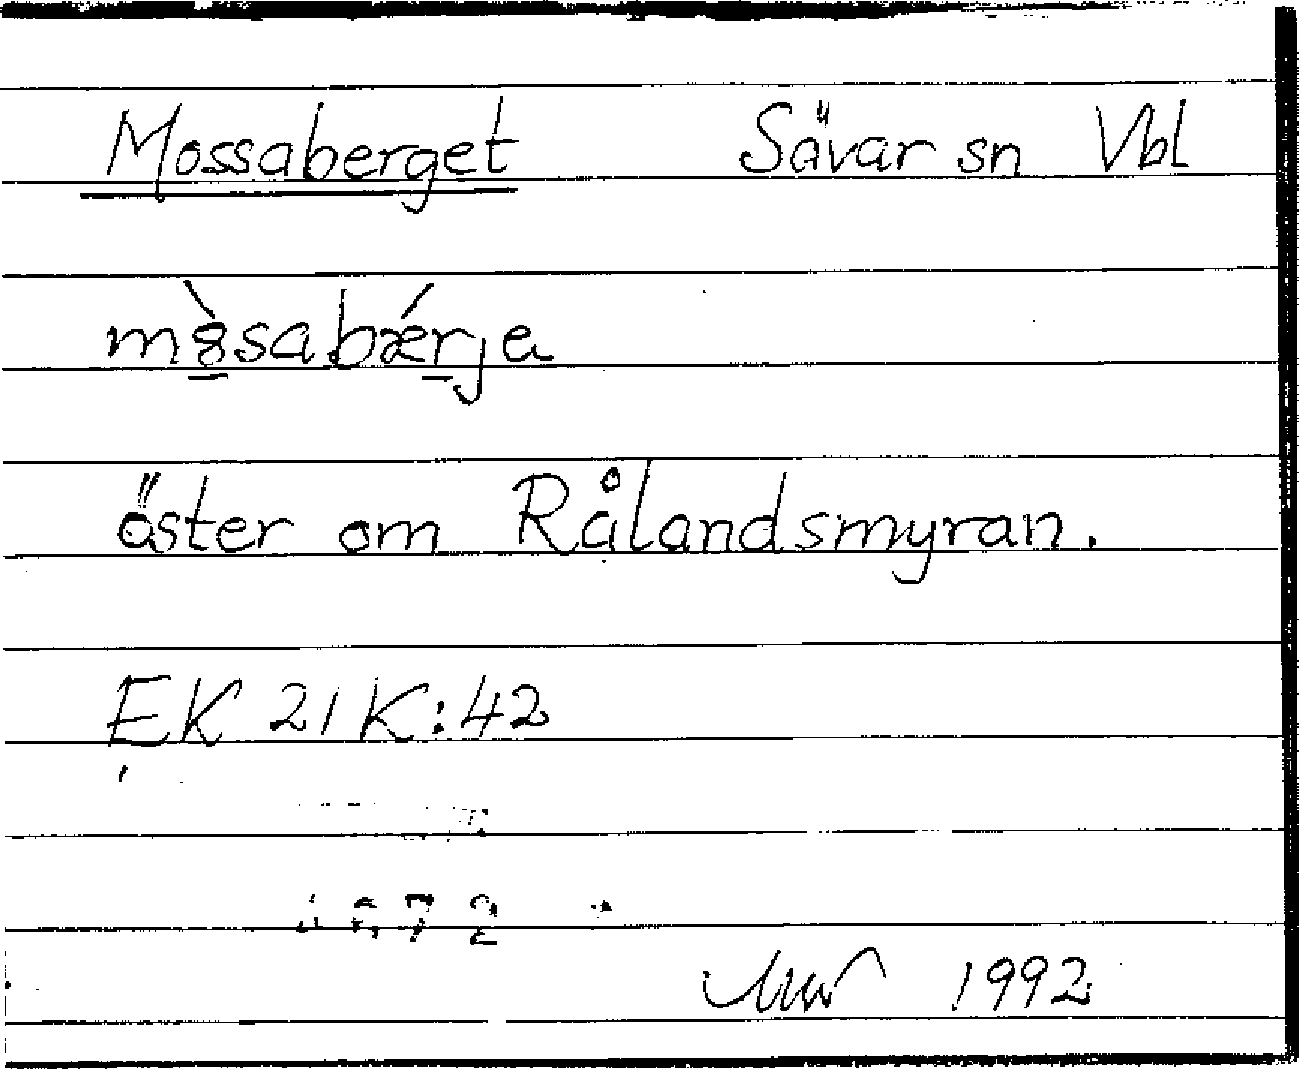 Mossaberget Sävar sn Vbl
mòsabǽrja
öster om Rålandsmyran.
EK 21K:42
1992